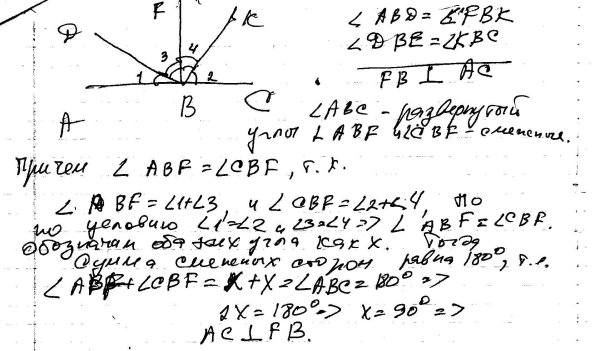 F
K
D
3 4
1 2
A
B
C
∠ABD = ∠FBK
∠DBE = ∠KBC
FB ⊥ AC
∠ABC - развернутый
углы ∠ABF и ∠CBF - смежные.
Причем ∠ABF = ∠CBF, т.к.
∠ABF = ∠1+∠3, и ∠CBF = ∠2+∠4, по
по условию ∠1=∠2 и ∠3=∠4 => ∠ABF = ∠CBF.
обозначим оба этих угла как x. Тогда
Сумма смежных сторон равна 180°, т.е.
∠ABF+∠CBF = X+X = ∠ABC = 180° =>
2X = 180° => x = 90° =>
AC ⊥ FB.